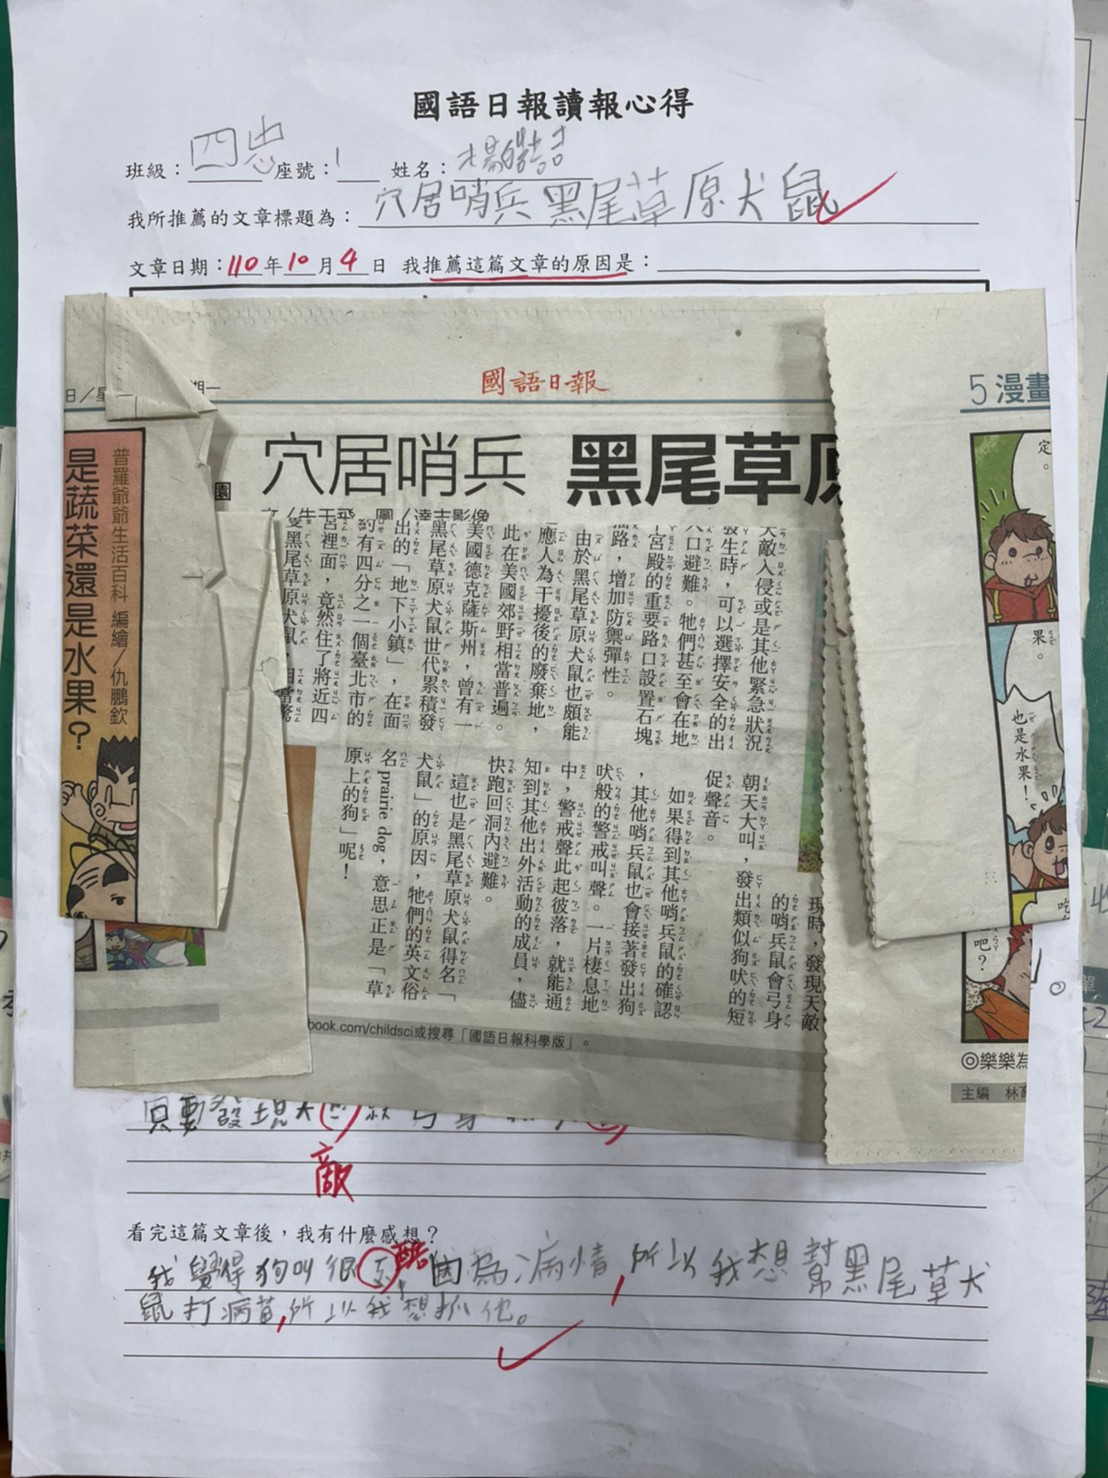 國語日報讀報心得
班級：四忠 座號：1 姓名：楊皓喆
我所推薦的文章標題為：穴居哨兵黑尾草原犬鼠
文章日期：110年10月4日 我推薦這篇文章的原因是：
國語日報
5漫畫
穴居哨兵 黑尾草原
普羅爺爺生活百科 編繪／仇鵬欽
是蔬菜還是水果？
天敵入侵或是其他緊急狀況
發生時，可以選擇安全的出
入口避難。牠們甚至會在地
下宮殿的重要路口設置石塊
，增加防禦彈性。
由於黑尾草原犬鼠也頗能
適應人為干擾後的廢棄地，
因此在美國郊野相當普遍。
美國德克薩斯州，曾有一
黑尾草原犬鼠世代累積發
出的「地下小鎮」，在面
約有四分之一個臺北市的
宮裡面，竟然住了將近四
隻黑尾草原犬鼠，
現時，發現天敵
的哨兵鼠會弓身
朝天大叫，發出類似狗吠的短
促聲音。
如果得到其他哨兵鼠的確認
，其他哨兵鼠也會接著發出狗
吠般的警戒叫聲。一片棲息地
中，警戒聲此起彼落，就能通
知到其他出外活動的成員，儘
快跑回洞內避難。
這也是黑尾草原犬鼠得名「
犬鼠」的原因，牠們的英文俗
名 prairie dog，意思正是「草
原上的狗」呢！
定。
果。
也是水果！
吃
吧？
book.com/childsci或搜尋「國語日報科學版」。
◎樂樂為
主編 林
只要發現天
敵
看完這篇文章後，我有什麼感想？
我覺得狗叫很酷，因為病情，所以我想幫黑尾草犬
鼠打病苗，所以我想抓他。